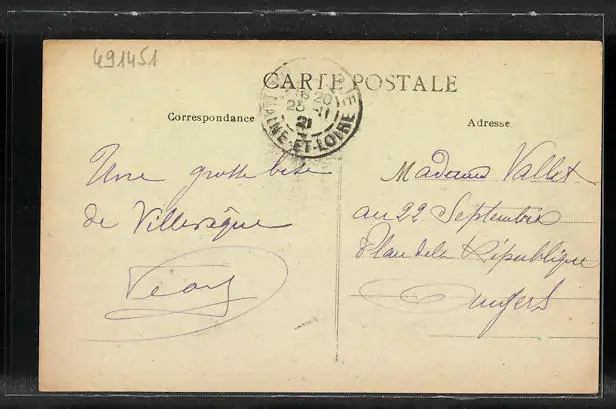 491451
CARTE POSTALE
Correspondance
Adresse
20
23 -11
21
MAINE-ET-LOIRE
Une grosse bise
de Villevêque
Madame Vallet
au 22 Septembre
Place de la République
Angers